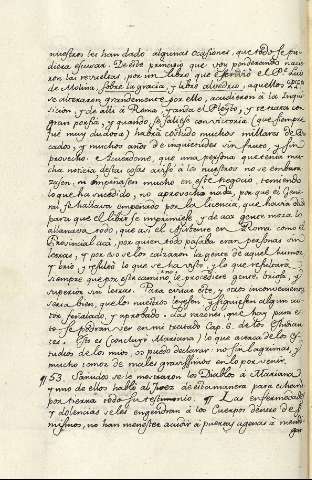 nuestros les han dado algunas ocasiones, que todo se pu-
diera escusar. De este principio que voy ponderando naçie-
ron las revueltas, por un libro, que estendió el Pe. Luis
de Molina, sobre la gracia, y libre alvedrio, aquellos PP.
se alteraron grandemente por ello, acudieron à la Inqui-
sicion, y de alli à Roma, y anda el Pleyto, y se trata con
gran porfia, y quando se saliese con victoria (que siempre
fué muy dudosa) habrà costado muchos millares de Du-
cados, y muchos años de inquietudes sin fruto, y sin
provecho. Acuerdome, que una persona que tenia mu-
cha noticia de las cosas avisó à los nuestros no se emba-
razasen, ni empeñasen mucho en este negocio, temiendo
lo que ha sucedido, no aprovechó nada, por que el Gene-
ral se hallava empeñado por la licencia, que havia dado
para que el libro se imprimiese, y de acá gente moza lo
allanava todo, que asi el Asistente en Roma como el
Provincial acá, por quien todo pasaba eran personas sin
letras, y por eso se les calzaron la gente de aquel humor
y brio, y resultò lo que se ha visto, y lo que resultarà
siempre que por este camino se procediere gente briosa, y
superior sin letras. Para evitar este, y otros inconvenientes
seria bien, que los nuestros leyesen, y siguiesen algun au-
tor señalado, y aprobado. Las razones, que hay para es-
to se podran ver en mi tratado Cap. 6. de los estudian-
tes. Esto es (concluye Mariana) lo que acerca de los es-
tudios de los mios, no puedo declarar no sin lagrimas, y
mucho temor de males gravissimos en lo por venir.
¶ 53. Sañudos se le mostraron los Diablos à Mariana
y uno de ellos hablò al Juez de esta manera para echar
por tierra todo su testimonio. ¶ Las enfermedades
y dolencias se les engendran à los Cuerpos dentro de sí
mismos, no han menester acudir à puertas agenas à mendi-
gar